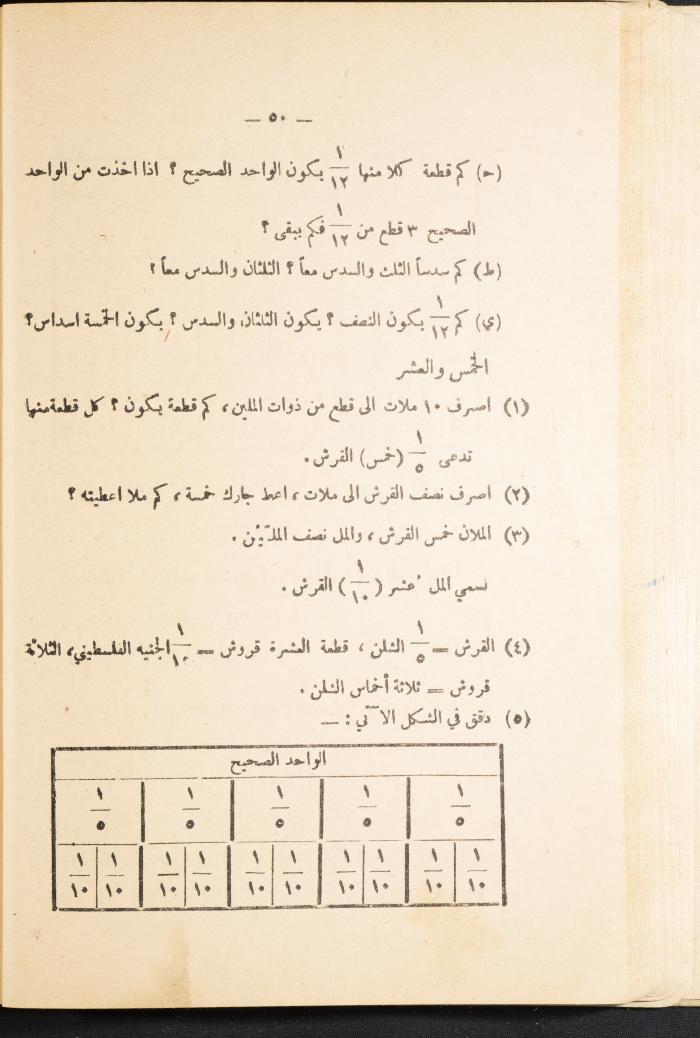 — ٥٠ —
(ح) كم قطعة كلا منها ١/١٢ يكون الواحد الصحيح ؟ اذا اخذت من الواحد
الصحيح ٣ قطع من ١/١٢ فكم يبقى ؟
(ط) كم سدساً الثلث والسدس معاً ؟ الثلثان والسدس معاً ؟
(ي) كم ١/١٢ يكون النصف ؟ يكون الثلثان والسدس ؟ يكون الخمسة اسداس ؟
الخمس والعشر
(١) اصرف ١٠ ملات الى قطع من ذوات الملين ، كم قطعة يكون ؟ كل قطعة منها
تدعى ١/٥ (خمس) القرش .
(٢) اصرف نصف القرش الى ملات ، اعط جارك خمسة ، كم ملا اعطيته ؟
(٣) الملان خمس القرش ، والمل نصف الملّين .
نسمي المل عُشر (١/١٠) القرش .
(٤) القرش = ١/٥ الشلن ، قطعة العشرة قروش = ١/١٠ الجنيه الفلسطيني ، الثلاثة
قروش = ثلاثة أخماس الشلن .
(٥) دقق في الشكل الآتي : —
الواحد الصحيح
١/٥ ١/٥ ١/٥ ١/٥ ١/٥
١/١٠ ١/١٠ ١/١٠ ١/١٠ ١/١٠ ١/١٠ ١/١٠ ١/١٠ ١/١٠ ١/١٠